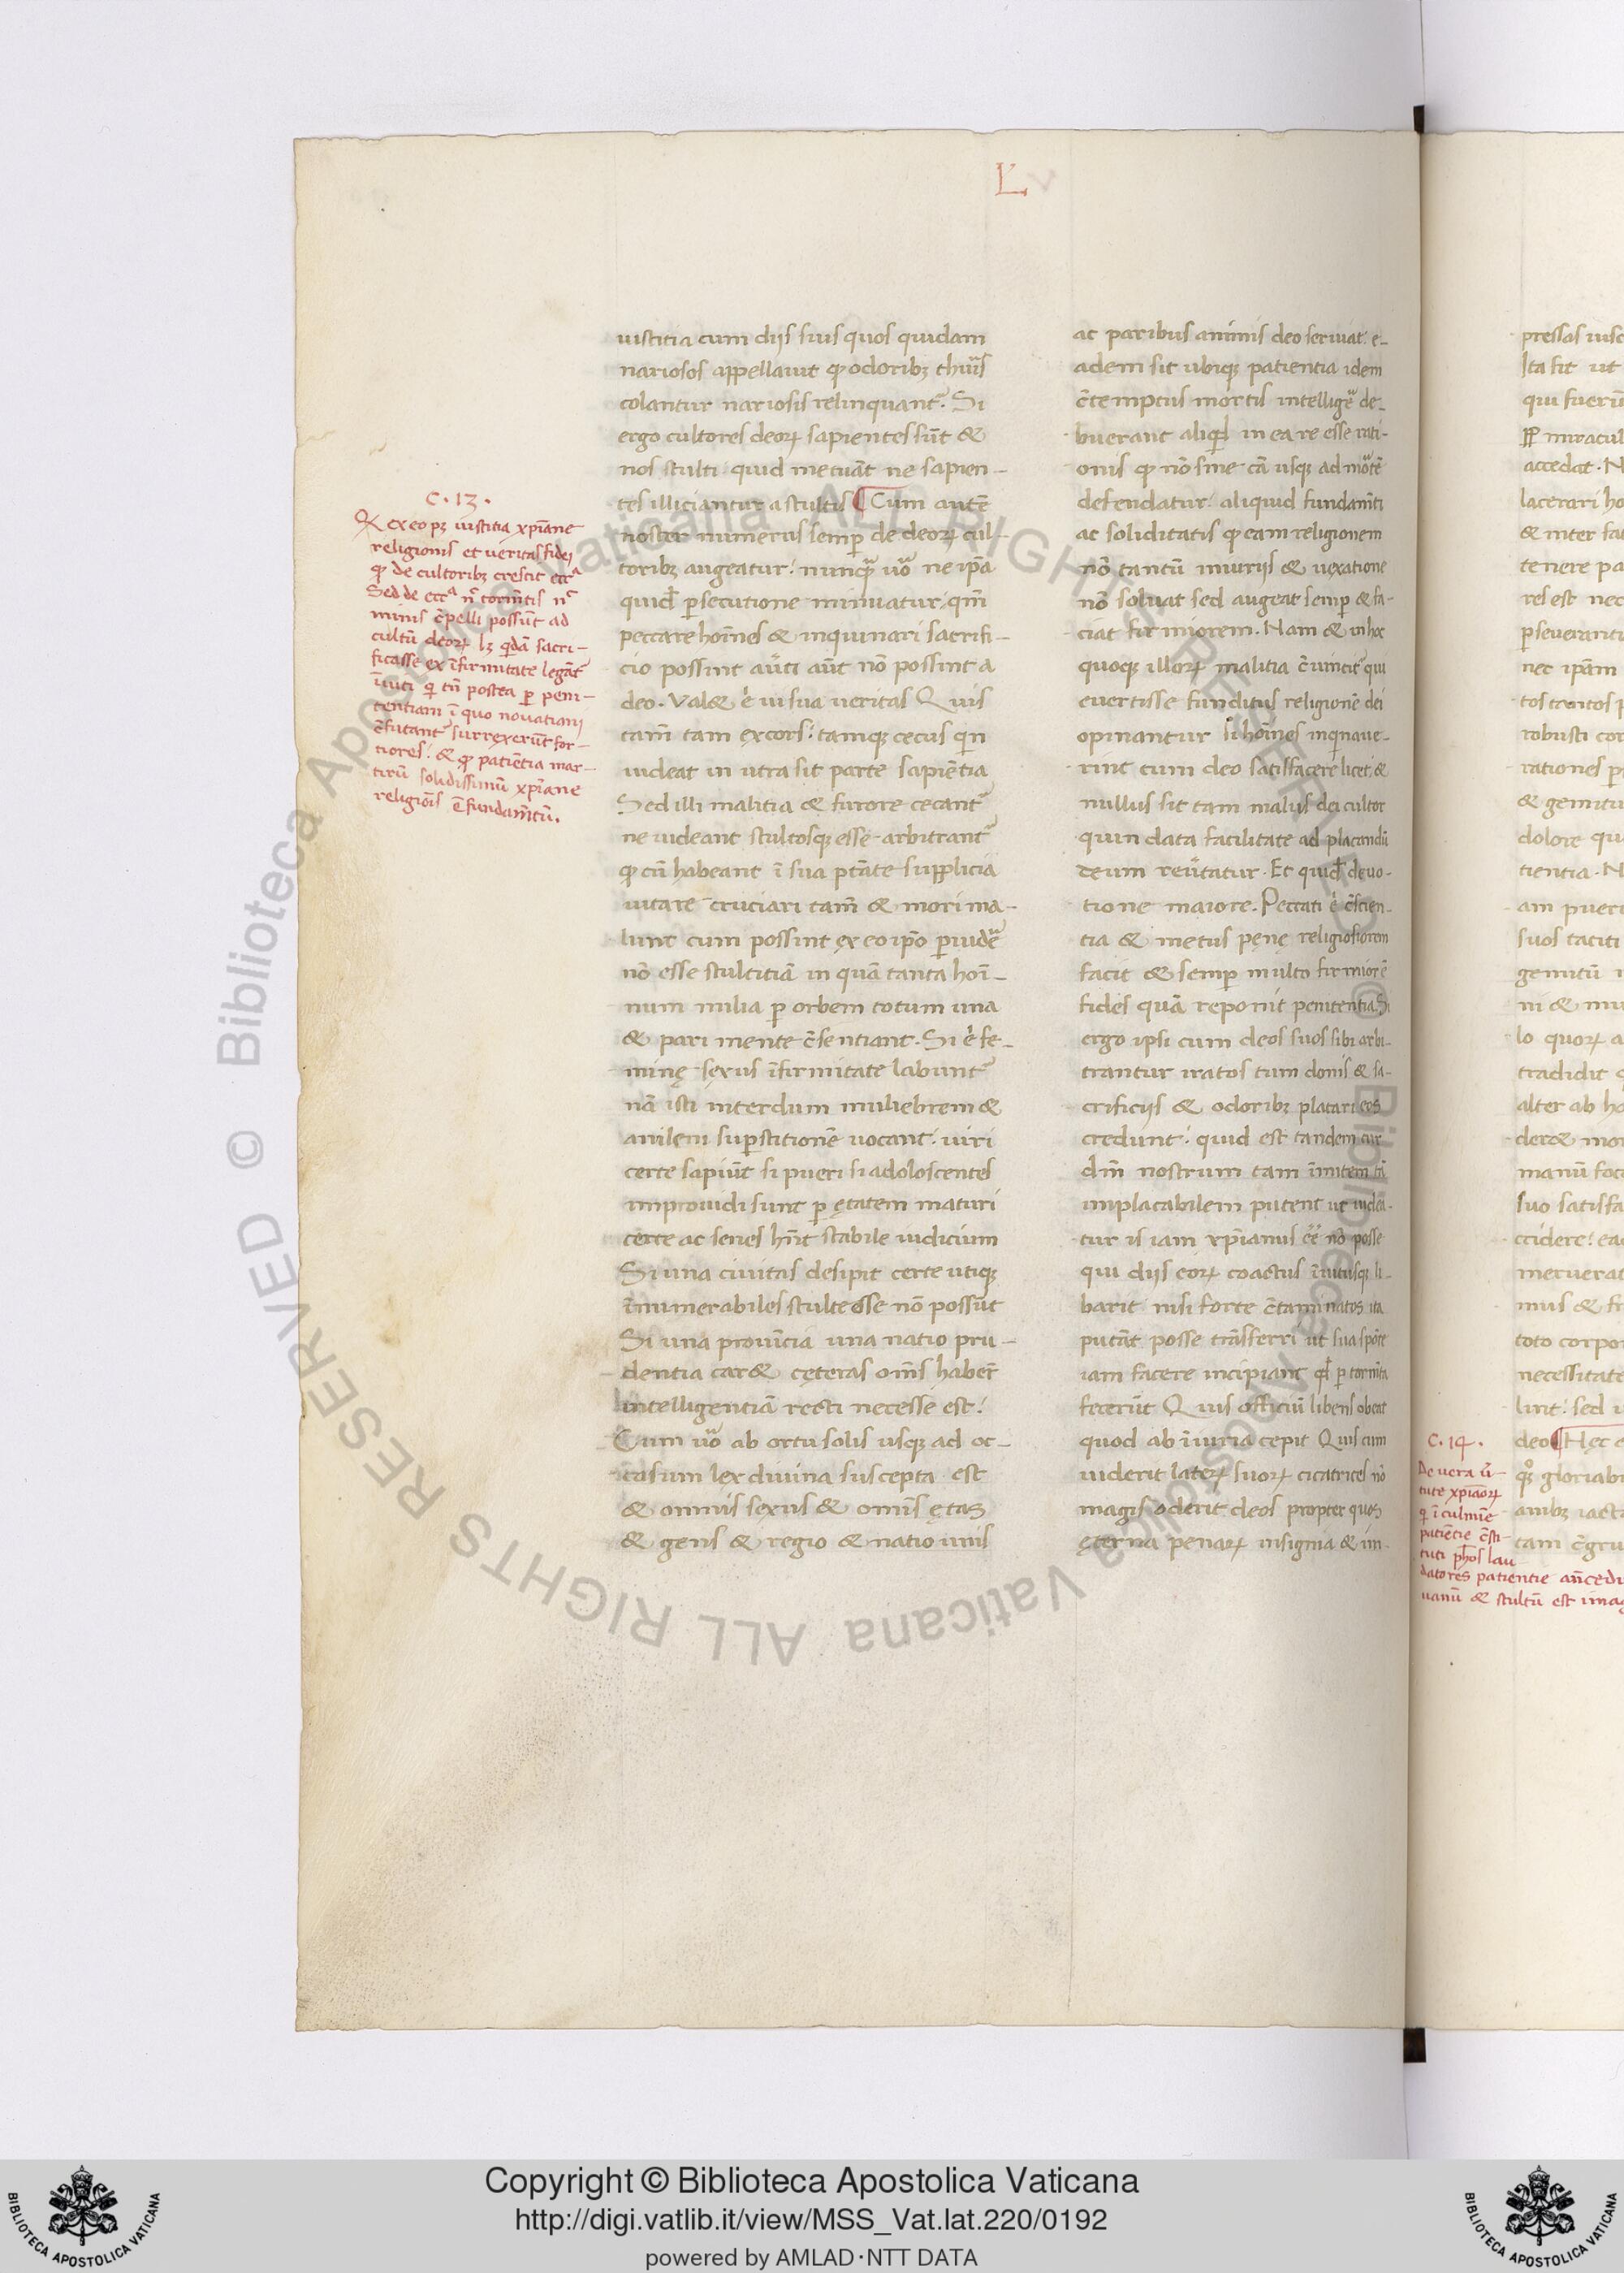 L
C · 13 ·
ex eo pȝ iustitia xp̄iane
religionis et ueritas fidei
ꝙ de cultoribȝ crescit
Sed de
minis c̄pelli possūt ad
cultū deoꝝ lȝ qdā sacri-
ficasse ex īfirmitate legāt᷑
īuiti qi tn̄ postea ꝑ peni-
tentiam ī quo nouatiani
c̄futant᷑ surrexerūt for-
tiores: & ꝙ patiētia mar-
tirū solidissimū xp̄iane
religiōis ē fundam̄tū.
iustitia cum diis suis quos quidam
nariosos appellauit ꝙ odoribȝ thuris
colantur nariosis relinquant᷑. Si
ergo cultores deoꝝ sapientes sūt &
nos stulti quid metuāt ne sapien-
tes illiciantur a stultis ¶ Cum autē
noster numerus semꝑ de deoꝝ cul-
toribȝ augeatur: nunqᷓ uo ne ip̄a
quid̄ ꝑsecutione minuatur: qm̄
peccare hoīnes & inquinari sacrifi-
cio possint auti aūt nō possint a
deo. Ualet ē ui sua ueritas Quis
tam̄ tam excors: tamqȝ cecus qin
uideat in utra sit parte sapiētia
Sed illi malitia & furore cecant᷑
ne uideant stultosqȝ esse arbitrant᷑
ꝙ cū habeant ī sua ptāte supplicia
uitare cruciari tam̄ & mori ma-
lunt cum possint ex eo ip̄o ꝑuidē
nō esse stultitiā in quā tanta hoī-
num milia ꝑ orbem totum una
& pari mente c̄sentiant. Si ē fe-
minę sexus īfirmitate labunt᷑
nā isti interdum muliebrem &
anilem suꝑstitionē uocant. uiri
certe sapiūt si pueri si adoloscentes
improuidi sunt ꝑ ętatem maturi
certe ac senes hn̄t stabile iudicium
Si una ciuitas desipit certe utiqȝ
īnumerabiles stulte esse nō possūt
Si una prouītia una natio pru-
dentia caret cęteras om̄s haber̄
intelligentiā recti necesse est:
Cum uo ab ortu solis usqȝ ad oc-
casum lex diuina suscepta est
& omnis sexus & omīs ętas
& gens & regio & natio unis
ac paribus animis deo seruiat. e-
adem sit ubiqȝ patientia idem
c̄temptus mortis intelligē de-
buerant aliqd in ea re esse rati-
onis ꝙ nō sine cā usqȝ ad mortē
defendatur: aliquid fundam̄ti
ac soliditatis ꝙ eam religionem
nō tantū iniuriis & uexatione
nō soluat sed augeat semꝑ & fa-
ciat firmiorem. Nam & in hoc
quoqȝ illoꝝ malitia c̄uincit᷑ qui
euertisse funditus religionē dei
opinantur si hoīnes inqinaue-
rint cum deo satisfacere licet &
nullus sit tam malus dei cultor
quin data facilitate ad placandū
deum reu̅tatur. Et quid̄ deuo-
tione maiore. Peccati ē c̄scien-
tia & metus penę religiosiorem
facit & semꝑ multo firmiorē
fides quā reponit penitentia. Si
ergo ipsi cum deos suos sibi arbi-
trantur iratos tum donis & sa-
crificiis & odoribȝ placari eos
credunt: quid est tandem cur
dm̄ nostrum tam īmitem tā
implacabilem putent ut uidea-
tur is iam xp̄ianus eē nō posse
qui diis eoꝝ coactus īuitusqȝ li-
barit nisi forte c̄taminatos ita
putāt posse trāsferri ut sua spōte
iam facere incipiant qd ꝑ torm̄ta
fecerūt Quis officiū libens obeat
quod ab iniuria cepit Quis cum
uiderit lateꝝ suoꝝ cicatrices nō
magis oderit deos propter quos
ęterna penaꝝ insignia & im-
Ita fit ut
accedat. N
lacerari ho
tenere pa
res est nec
nec ipam
robusti cor
rationes
& gemitu
dolore
tientia. N
suos taciti
lo quoꝝ a
tradidit
alter ab ho
suo satisfa
mus & fr
toto corpo
necessitate
C · 14 ·
De uera
deo ¶ Hęc
datores patientie
uanū & stultū est
Copyright © Biblioteca Apostolica Vaticana
http://digi.vatlib.it/view/MSS_Vat.lat.220/0192
powered by AMLAD·NTT DATA
BIBLIOTECA APOSTOLICA VATICANA
BIBLIOTECA APOSTOLICA VATICANA
© Biblioteca Apostolica Vaticana ALL RIGHTS RESERVED
© Biblioteca Apostolica Vaticana ALL RIGHTS RESERVED